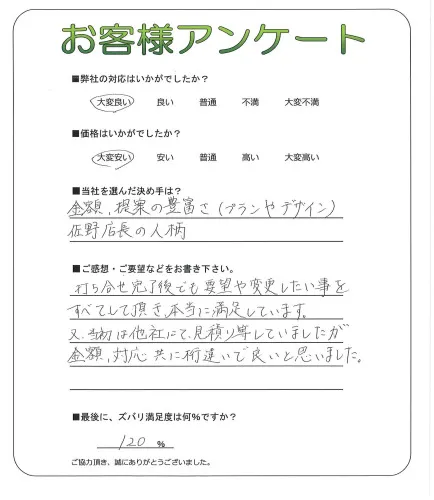 お客様アンケート
■弊社の対応はいかがでしたか？
大変良い 良い 普通 不満 大変不満
■価格はいかがでしたか？
大変安い 安い 普通 高い 大変高い
■当社を選んだ決め手は？
金額，提案の豊富さ（プランやデザイン）
佐野店長の人柄
■ご感想・ご要望などをお書き下さい。
打ち合せ完了後でも要望や変更したい事を
すべてして頂き、本当に満足しています。
又、当初は他社にて、見積り等していましたが
金額，対応共に桁違いで良いと思いました。
■最後に、ズバリ満足度は何%ですか？
120 %
ご協力頂き、誠にありがとうございました。